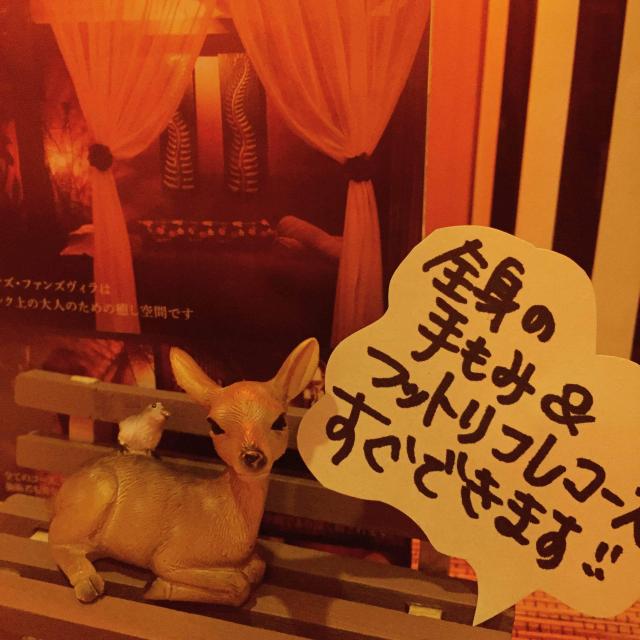 ズ・ファンズヴィラは
ク上の大人のための癒し空間です
全身の
手もみ&
フットリフレコース
すぐできます!!